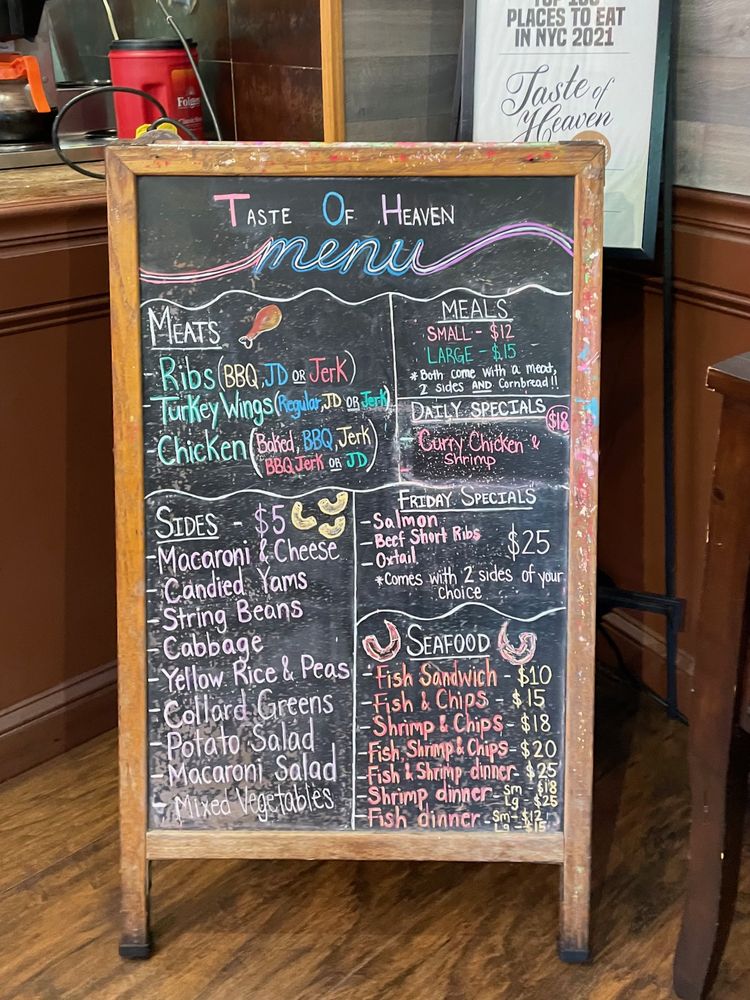 Folgers
TOP 100
PLACES TO EAT
IN NYC 2021
Taste of
Heaven
TASTE OF HEAVEN
menu
MEATS
- Ribs (BBQ, JD OR Jerk)
- Turkey Wings (Regular, JD OR Jerk)
- Chicken (Baked, BBQ, Jerk
BBQ Jerk OR JD)
MEALS
SMALL - $12
LARGE - $15
*Both come with a meat,
2 sides AND Cornbread!!
DAILY SPECIALS $18
- Curry Chicken &
Shrimp
-
SIDES - $5
- Macaroni & Cheese
- Candied Yams
- String Beans
- Cabbage
- Yellow Rice & Peas
- Collard Greens
- Potato Salad
- Macaroni Salad
- Mixed Vegetables
FRIDAY SPECIALS
- Salmon
- Beef Short Ribs
- Oxtail
$25
*Comes with 2 sides of your
choice
SEAFOOD
- Fish Sandwich - $10
- Fish & Chips - $15
- Shrimp & Chips - $18
- Fish, Shrimp & Chips - $20
- Fish & Shrimp dinner - $25
- Shrimp dinner - Sm - $18
Lg - $25
- Fish dinner - Sm - $12
Lg - $15